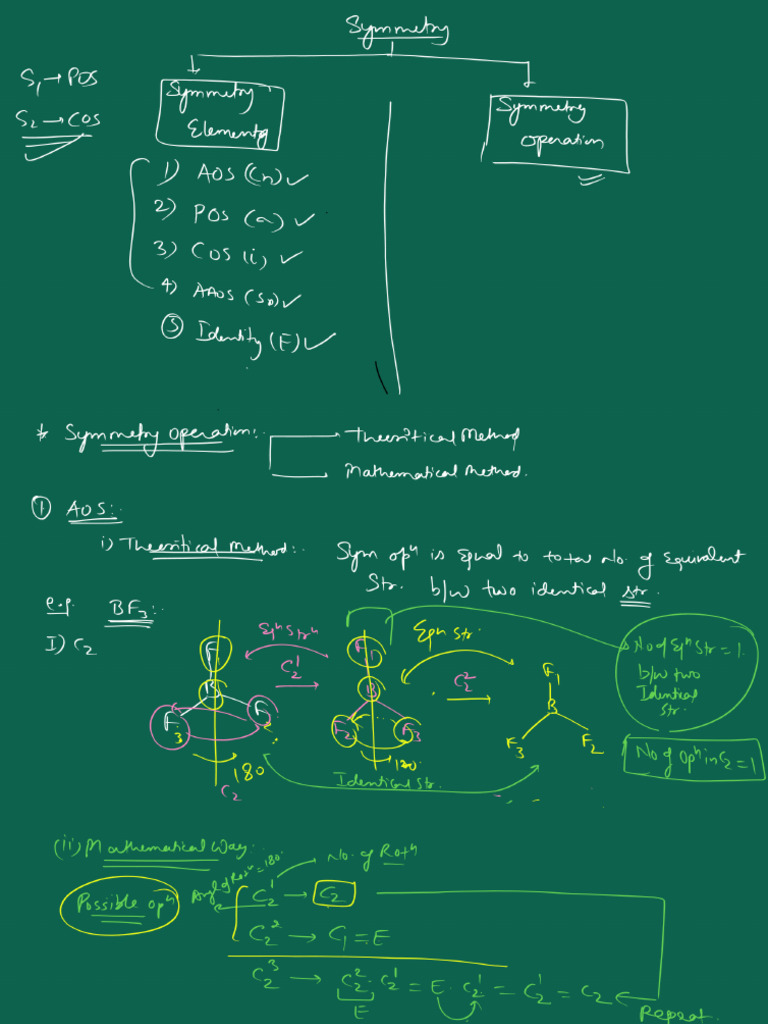 Symmetry
S₁ → POS
S₂ → COS
Symmetry
Elements
Symmetry
operation
1) AOS (Cn) ✓
2) POS (σ) ✓
3) COS (i) ✓
4) AAOS (Sn) ✓
⑤ Identity (E) ✓
* Symmetry operation:.
Theoritical Method
Mathematical Method.
① AOS:.
i) Theoritical Method:.
Sym opⁿ is equal to total No. of equivalent
Str. b/w two identical str.
e.g. BF₃:.
I) C₂
Eqⁿ Strⁿ
C₂¹
Eqn str.
C₂²
F₁
B
F₃
F₂
180
C₂
F₁
B
F₂
F₃
180
F₁
B
F₃
F₂
Identical Str.
No of Eqⁿ Str = 1
b/w two
Identical
str.
No of opⁿ in C₂ = 1
(ii) Mathematical Way:.
No. of Rotⁿ
Angl of Rotⁿ = 180°
Possible opⁿ
C₂¹ → C₂
C₂² → C₁ = E
C₂³ → C₂² · C₂¹ = E · C₂¹ = C₂¹ = C₂
E
Repeat.